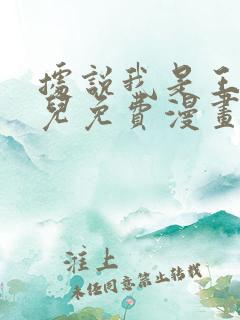 據說我是王
兒免費漫畫
淮上
未經同意禁止轉載